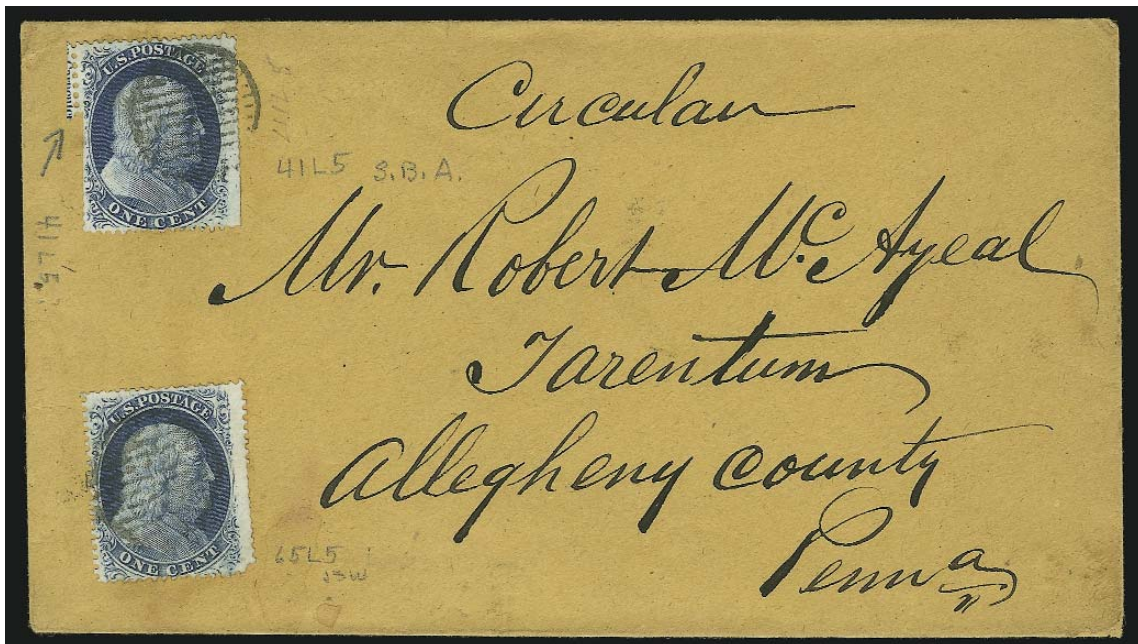 U.S. POSTAGE
ONE CENT
41L5 S.B.A.
41L5
Circular
Mr. Robert Mc Ayeal
Tarentum
Allegheny county
Penna
U.S. POSTAGE
ONE CENT
65L5